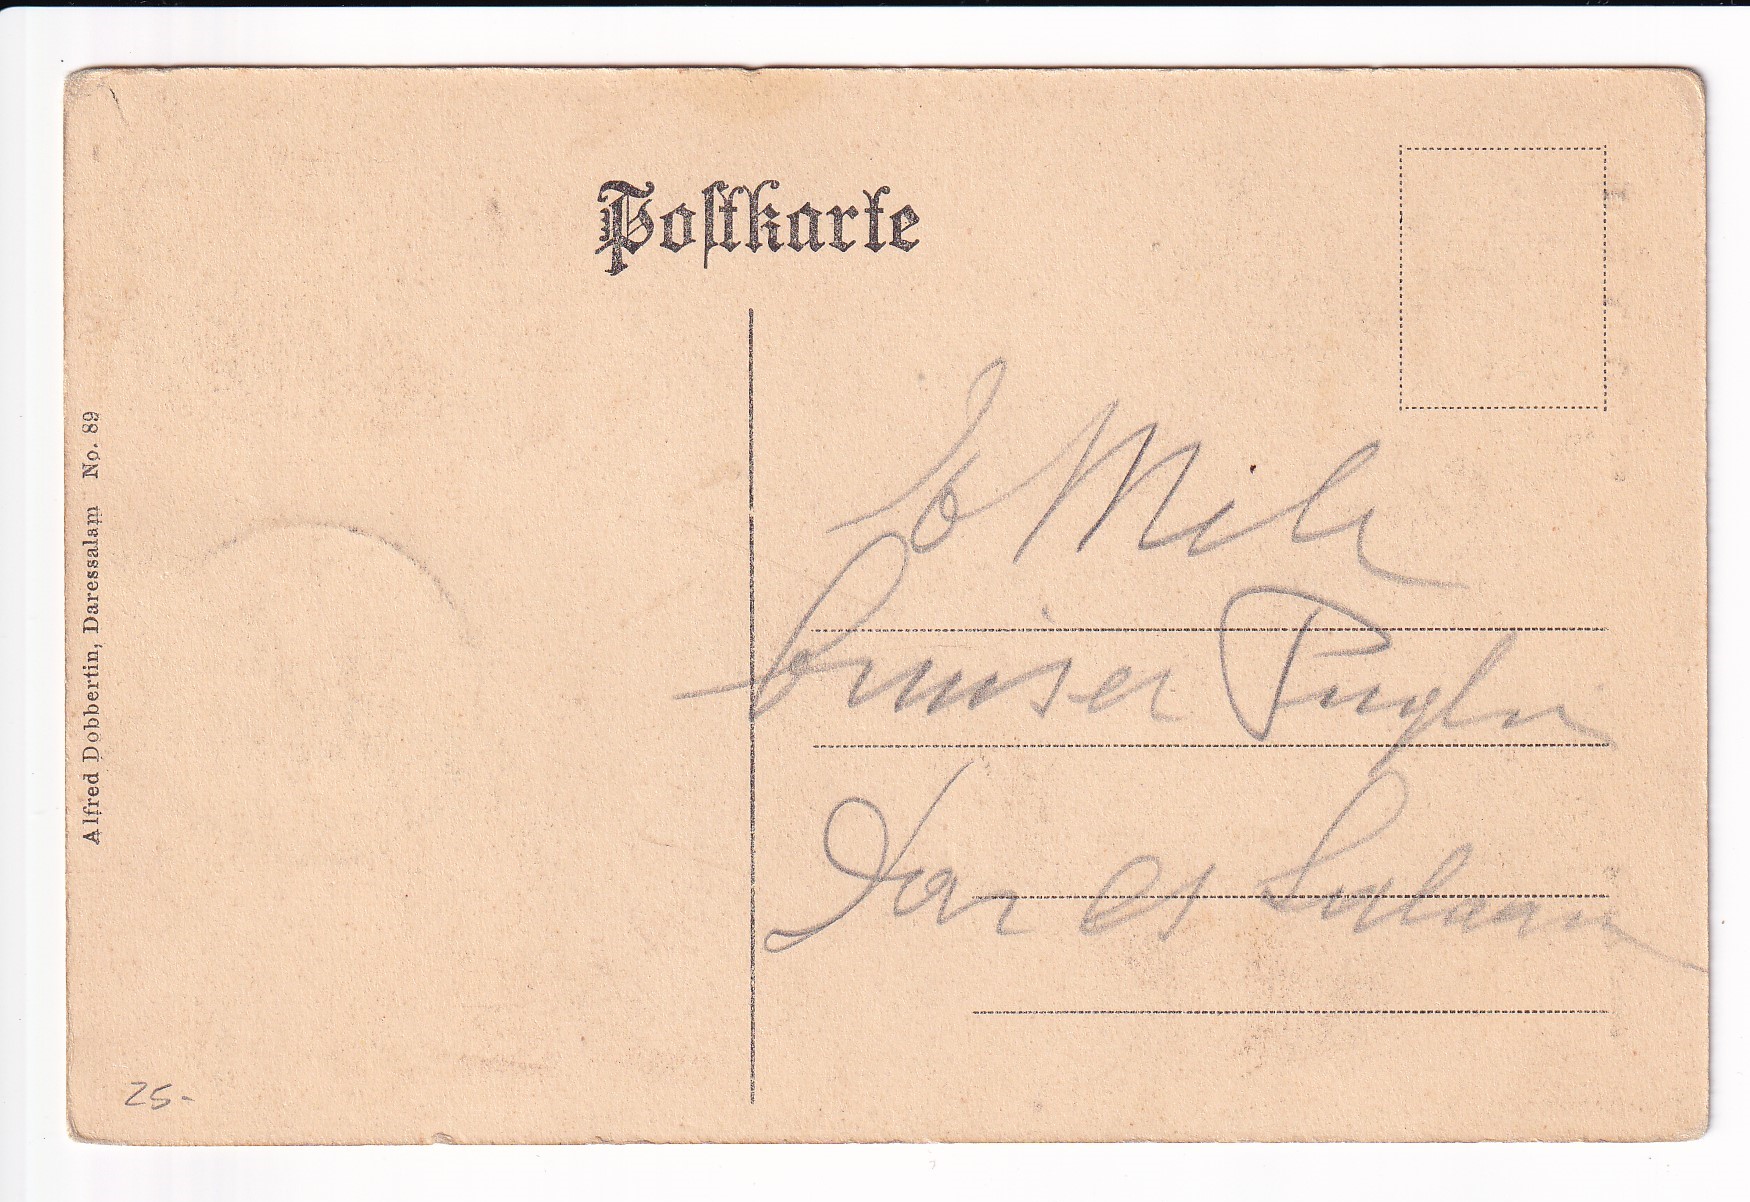 Postkarte
Alfred Dobbertin, Daressalam No. 89
Cruiser
Dar es Salaam
25-